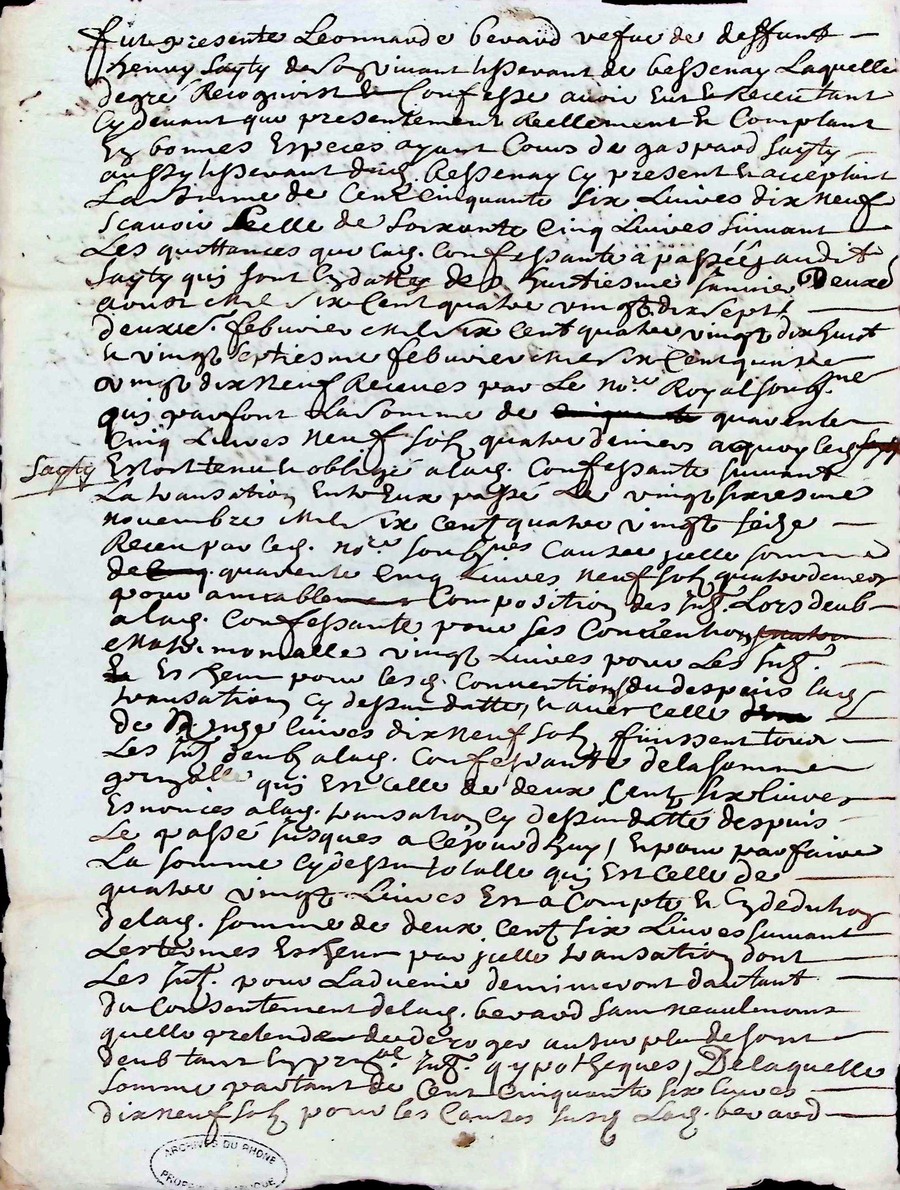 fut presente Leonnarde berard vefue de deffunt
henry Sayty de son vivant tisserant de bessenay Laquelle
degré Recognoist Et Confesse avoir Eut Et Receu tant
Cy devant que presentement Reellement Et Comptant
En bonnes Especes ayant Cours de gaspard Sayty
aussy tisserant dud. Bessenay Cy present Et acceptant
La somme de Cent Cinquante Six Livres dix neuf
scavoir Celle de Soixante Cinq Livres Suivant
Les quittances que lad. Confessante a passées audit
Sayty quy sont Cy dattes des huitiesme Janvier Deuxe
aoust Mil Six Cent quatre vingt dix sept
deuxe. febuvier Mil Six Cent quatre vingt dix huit
et vingt septiesme febuvier Mil Six Cent quatre
vingt dix Neuf Receues par Le nore Royal soubsné
quy parfont La Somme de quarente
Cinq Livres Neuf solz quatre deniers aquoy led
Sayty Est obtenu et obligé a lad. Confessante suivant
La transation Entr'Eux passé Le vingt sixiesme
novembre Mil Six Cent quatre vingt seize
Receu par led. nore soubsnés Causée jcelle somme
de quarente Cinq Livres neuf solz quatre deniers
pour amiable Composition des Int. Lors deub
a lad. Confessante pour ses Convention
Matrimonialle vingt Livres pour Les Int.
Escheu pour lesd. Conventions du despuis lad.
transation Cy dessus datté, Et avec Celle
de unze livres dix neuf solz finissent tout
Les Int. deubz alad. Confessante de la somme
prinzalle quy Est Celle de deux Cent Six livres
Esnoncés alad. transation Cy dessus datté despuis
Le passé Jusques a Cejourdhuy, Et pour parfaire
La somme Cy dessus totalle quy Est Celle de
quatre vingt Livres Est a Compte Et Cy deduhon
delad. somme de deux Cent six Livres suivant
Les termes Escheus par jcelle transation dont
Les Int. pour Ladvenir deminueront dautant
du Consentement delad. berard sans neaulmoins
quelle pretende deroger au surplus de son
deub tant En prpal. Int. qypotheques, De Laquelle
Somme partant de Cent Cinquante six livres
dix neuf solz pour les Causes susd. Lad. berard
ARCHIVES DU RHONE
PROPRIÉTÉ PUBLIQUE